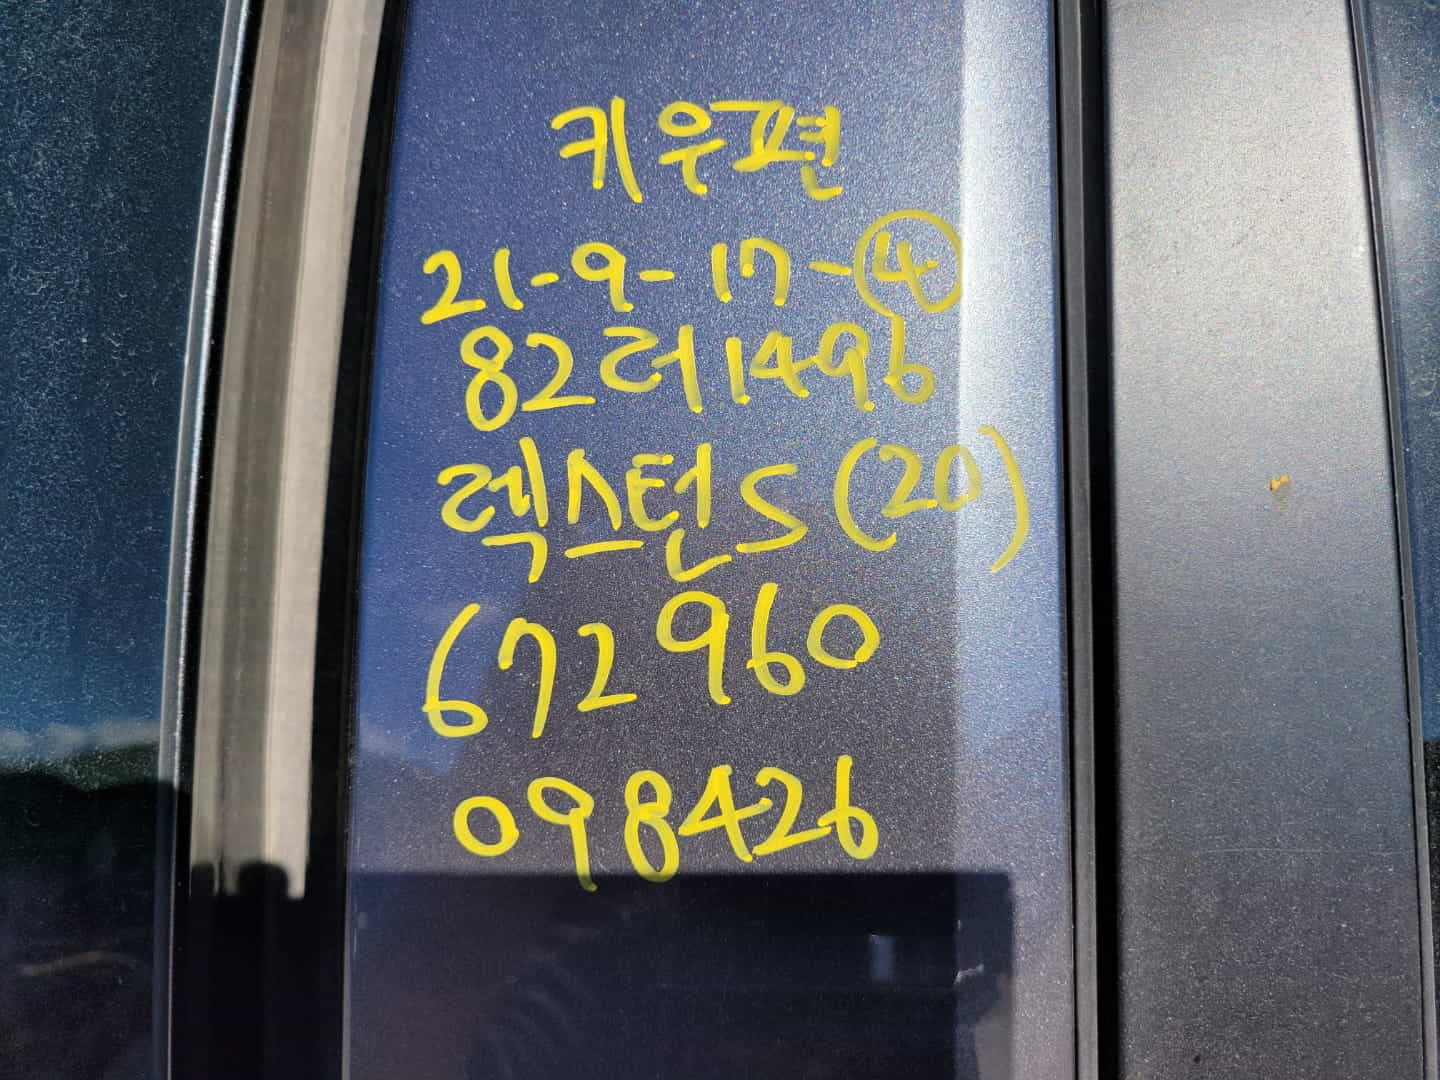 키우편
21-9-17-④
82러1496
렉스턴S(20)
672960
098426